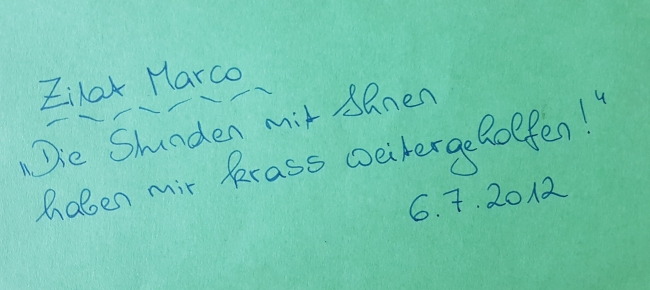 Zitat Marco
„Die Stunden mit Ihnen
haben mir krass weitergeholfen!“
6.7.2012